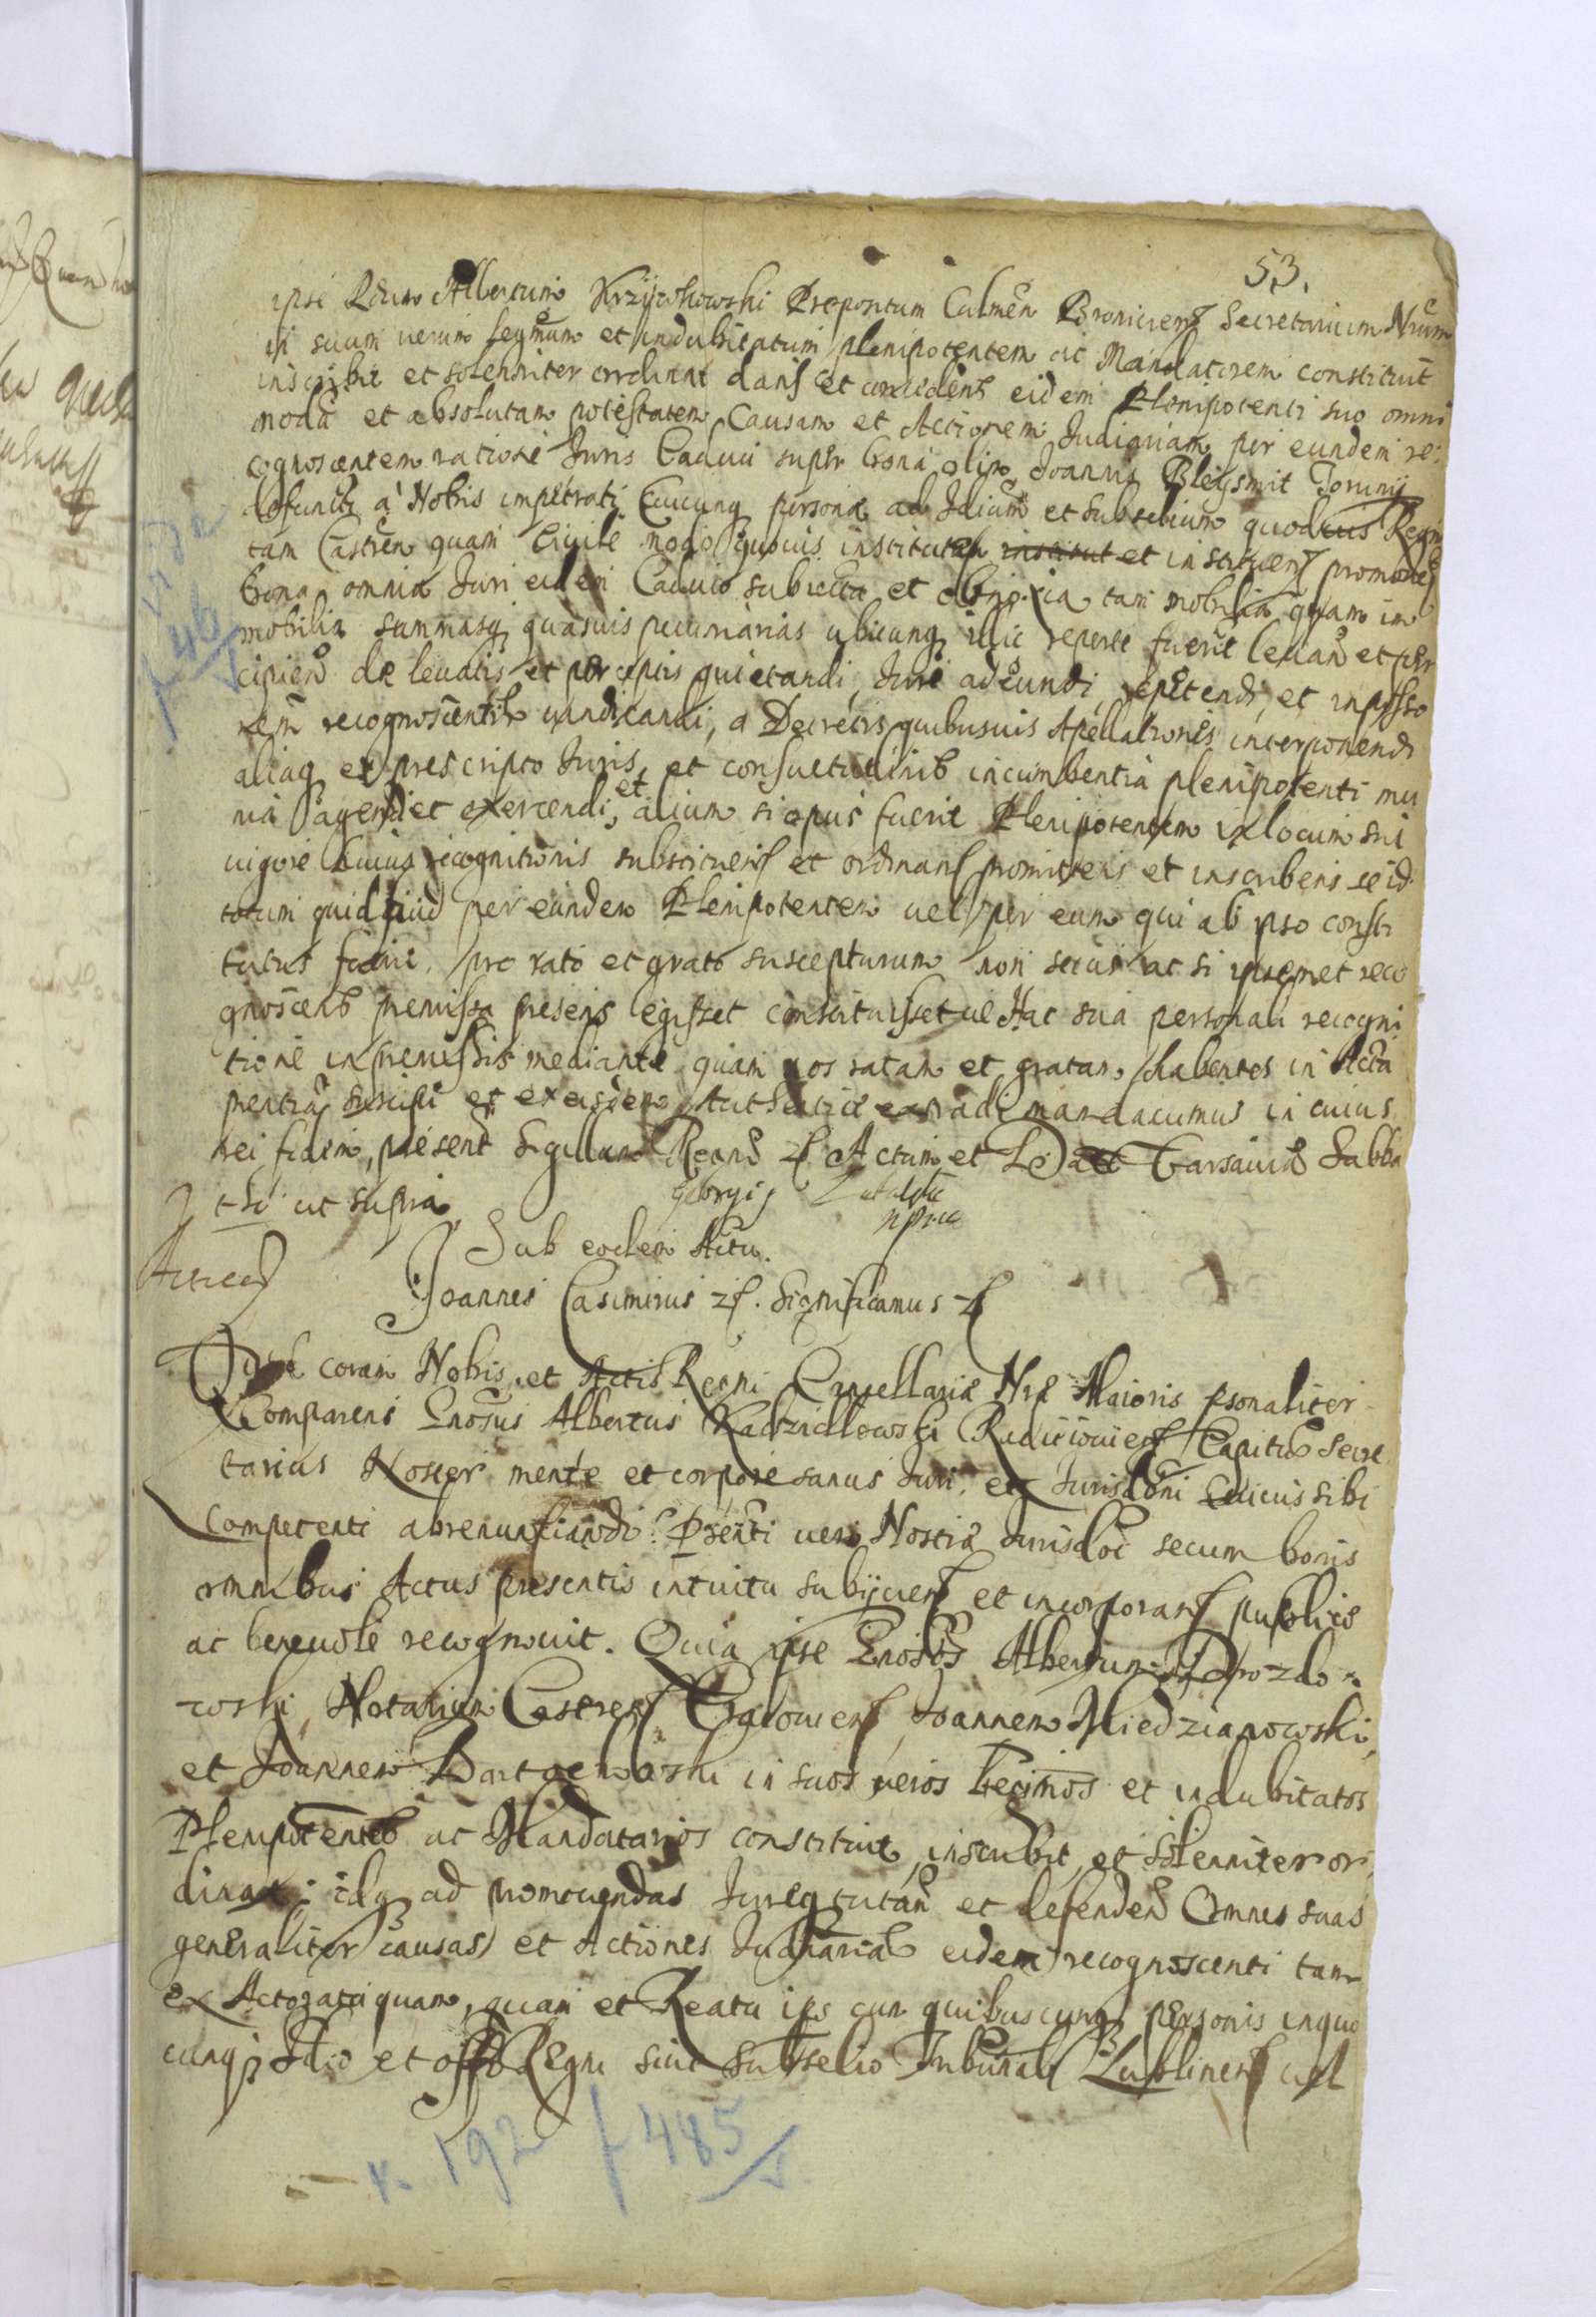 53.
ipse Rdum Albertum Krzyckowski Prepositum Culmen Bronicens Secretarium Nrum
in suum verum legmum et indubitatum plenipotentem ac Mandatorem constituit
inscribit et solenniter ordinat dans et concedens eidem Plenipotenti suo omni
moda et absolutam potestatem Causam et Actionem Judiciariam per eundem re:
cognoscentem ratione Juris Caduci super bona olim Joannis Bleysmit Torunij
defuncti a Nobis impetrati Cuicunq personae ad Judicium et subsellium quoduis Regni
tam Castren quam Civile modo quouis institutam et instituens promouens
bona omnia Juri eidem Caduco subiecta et obnoxia tam mobilia quam im
mobilia summasq quasuis pecuniarias ubicunq illic reperte fuerit leuand et per
cipiend de leuatis et perceptis quietandi, Jure adeundi, repetendi, et in posso
nem recognoscentis uindicandi, a Decretis quibusuis Apellationes interponendi
aliaq ex prescripto Juris, et consuetudinib incumbentia plenipotenti mu
nia agendi et exercendi, et alium si opus fuerit Plenipotentem in locum sui
uigore huius recognitionis substituens et ordinans promittens et inscribens se id
totum quidquid per eundem Plenipotentem uel per eum qui ab ipso consti
tutus fuerit, pro rato et grato suscepturum non secus ac si ipsemet reco
gnoscens premissa presens egisset constituissetue Hac sua personali recogni
tione in premissis mediante quam nos ratam et gratam habentes in Acta
pentia suscipi et ex eisdem Authentice extradi mandauimus in cuius
rei fidem, present Sigillum Regni zt Actum et Dat Varsauiae Sabba
tho ut supra
Sub eodem Actu.
Joannes Casimirus zt. Significamus zt
Quod coram Nobis et Actis Regni Cancellariae Nrae Maioris psonaliter
Comparens Gnosus Albertus Radzieiowski Capitus Secre
tarius Noster mente et corpore sanus Juri et Jurisdoni cuiuis sibi
competenti abrenunciando Psenti uero Nostrae Jurisdoi secum bonis
omnibus Actus presentis intuitu subijciens et incorporans publice
ac beneuole recognouit. Quia ipse Gnosos Albertum Drozdo =
woski Notarium Castrens Cracouiens Joannem Miedzianowski,
et Joannem in suos ueros legimos et indubitatos
Plenipotentes ac Mandatarios constituit, inscribit, et Solenniter or
dinat: idq ad promouendas Jureq tutand et defendend Omnes suas
generaliter causas et Actiones Judiarias eidem recognoscenti tam
ex Actoratu quam, quam et Reatu ips cum quibuscunq personis in quo
cunq Judio et offo Regni siue Subselio Tribunali Lublinens uel
k. 192 f 485